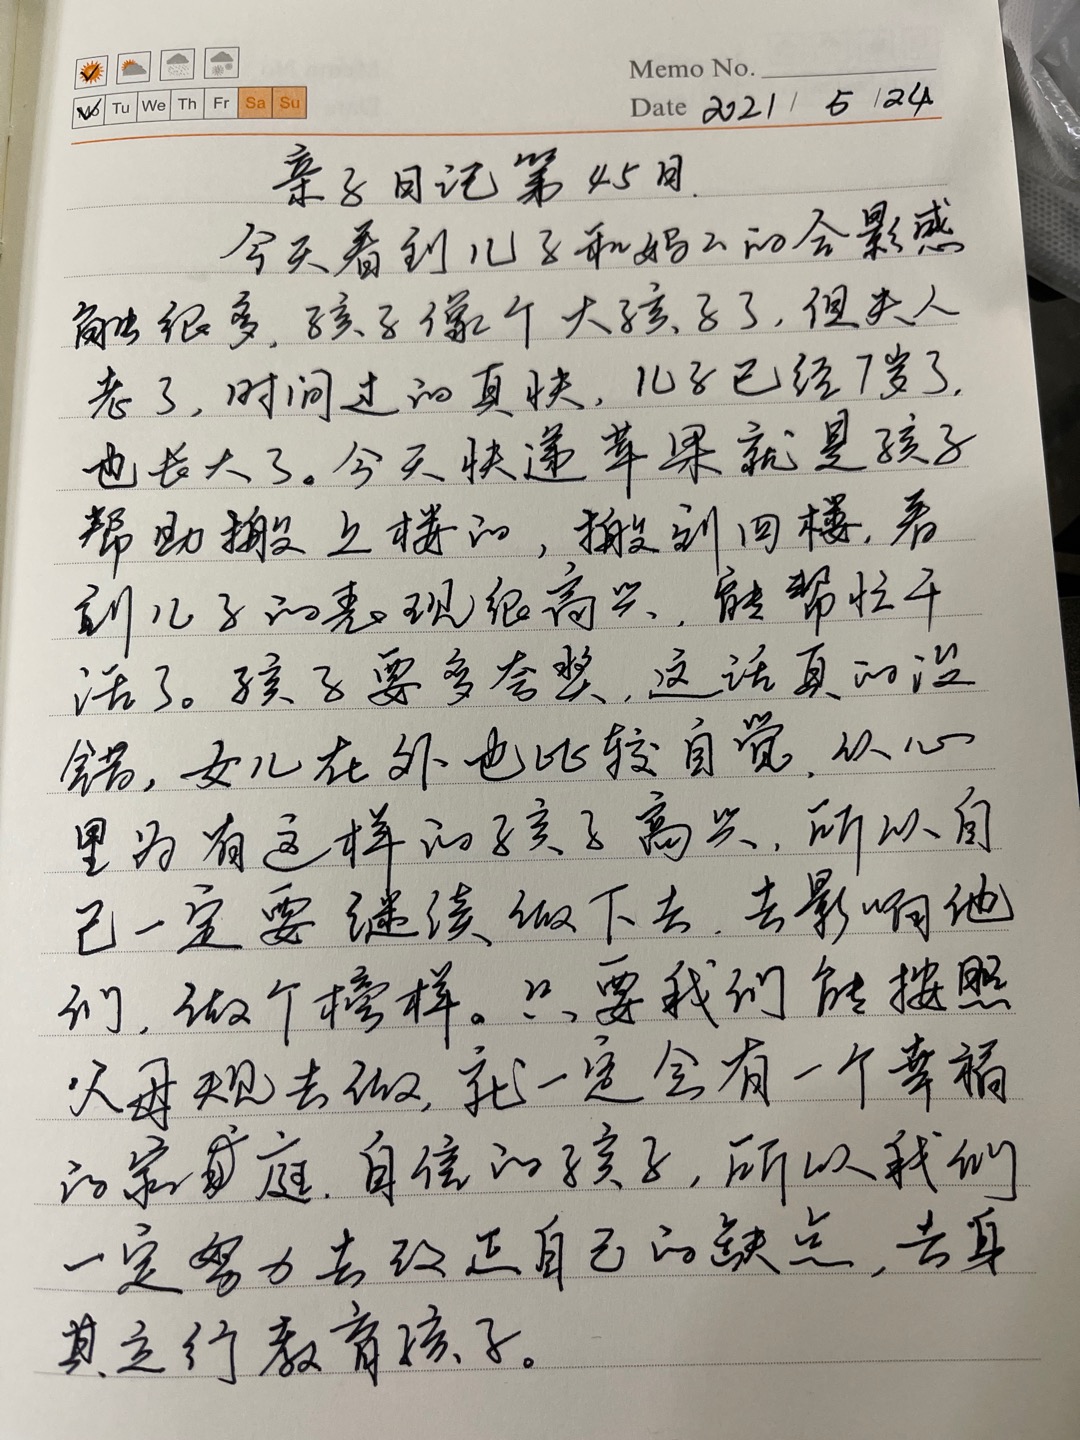 Memo No.
Mo Tu We Th Fr Sa Su
Date 2021 / 5 / 24
亲子日记第45日.
今天看到儿子和妈妈的合影感
触很多，孩子像个大孩子了，但夫人
老了，时间过的真快，儿子已经7岁了，
也长大了。今天快递苹果就是孩子
帮助搬上楼的，搬到四楼，看
到儿子的表现很高兴，能帮忙干
活了。孩子要多夸奖，这话真的没
错，女儿在外也比较自觉，从心
里为有这样的孩子高兴，所以自
己一定要继续做下去，去影响他
们，做个榜样。只要我们能按照
父母规去做，就一定会有一个幸福
的家庭，自信的孩子，所以我们
一定努力去改正自己的缺点，去身
其立行教育孩子。